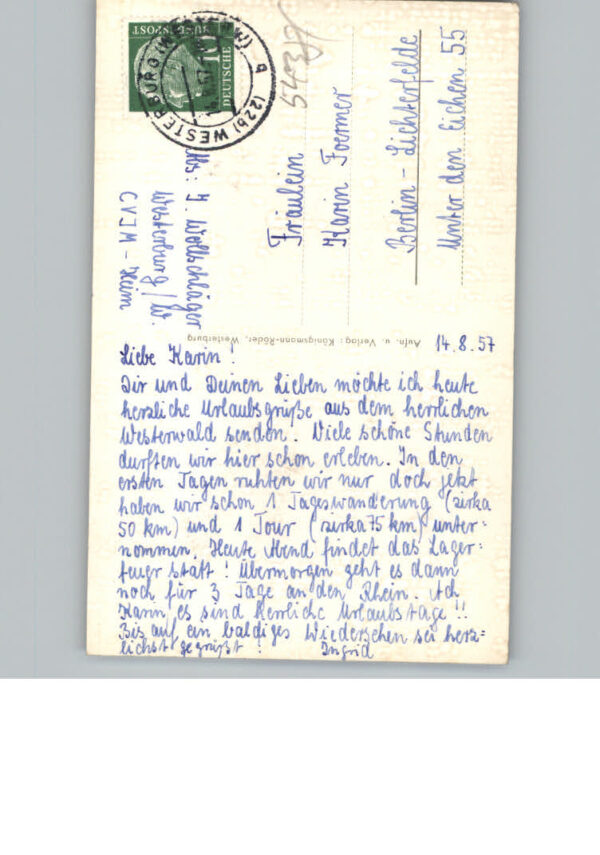 DEUTSCHE
BUNDESPOST
10
(22b) WESTERBURG (WESTERW)
54317
Abs: I. Wollschläger
Westerburg / W.
CVJM - Heim
Fräulein
Karin Foermer
Berlin - Lichterfelde
Unter den Eichen 55
Aufn. u. Verlag: Königsmann-Röder, Westerburg
14.8.57
Liebe Karin!
Dir und Deinen Lieben möchte ich heute
herzliche Urlaubsgrüße aus dem herrlichen
Westerwald senden. Viele schöne Stunden
durften wir hier schon erleben. In den
ersten Tagen ruhten wir nur doch jetzt
haben wir schon 1 Tageswanderung (zirka
50 km) und 1 Tour (zirka 75 km) unter=
nommen. Heute Abend findet das Lager=
feuer statt! Übermorgen geht es dann
noch für 3 Tage an den Rhein. Ach
Karin es sind herrliche Urlaubstage!!
Bis auf ein baldiges Wiedersehen sei herz=
lichst gegrüßt! Ingrid